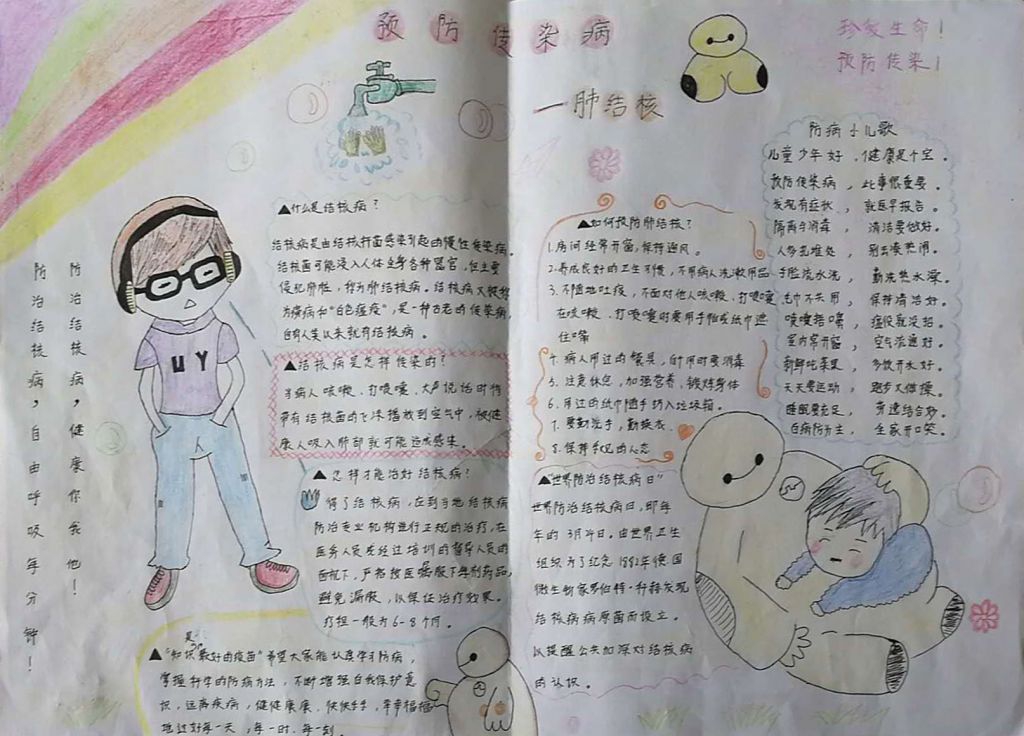 预防传染病
—肺结核
珍爱生命！
预防传染！
防治结核病，健康你我他！
防治结核病，自由呼吸每分钟！
UY
▲什么是结核病？
结核病是由结核杆菌感染引起的慢性传染病。
结核菌可能侵入人体全身各种器官，但主要
侵犯肺脏，称为肺结核病。结核病又被称
为痨病和“白色瘟疫”，是一种古老的传染病，
自有人类以来就有结核病。
▲结核病是怎样传染的？
当病人咳嗽、打喷嚏、大声说话时将
带有结核菌的飞沫播放到空气中，被健
康人吸入肺部就可能造成感染。
▲怎样才能治好结核病？
得了结核病，应到当地结核病
防治专业机构进行正规的治疗，在
医务人员或经过培训的督导人员的
面视下，严格按医嘱服下每剂药品，
避免漏服，以保证治疗效果。
疗担一般为6-8个月。
▲“知识是最好的疫苗”希望大家能认真学习防病，
掌握科学的防病方法，不断增强自我保护意
识，远离疾病，健健康康、快快乐乐、幸幸福福
地过好每一天，每一时、每一刻。
▲如何预防肺结核？
1.房间经常开窗，保持通风。
2.养成良好的卫生习惯，不用病人洗漱用品
3.不随地吐痰，不面对他人咳嗽、打喷嚏
在咳嗽、打喷嚏时要用手帕或纸巾遮
住口鼻
4.病人用过的餐具，食用时要消毒
5.注意休息，加强营养，锻炼身体
6.用过的纸巾随手扔入垃圾箱。
7.要勤洗手，勤换衣。
8.保持乐观的心态
▲“世界防治结核病日”
世界防治结核病日，即每
年的3月24日。由世界卫生
组织为了纪念1882年德国
微生物家罗伯特·科赫发现
结核病病原菌而设立。
以提醒公共加深对结核病
的认识。
防病小儿歌
儿童少年好，健康是个宝。
预防传染病，此事很重要。
发现有症状，就医早报告。
隔离与消毒，清洁要做好。
人多乱处，别去凑热闹。
手脸流水洗，勤洗热水澡。
毛巾不共用，保持清洁好。
喷嚏捂口鼻，瘟疫就没招。
室内常开窗，空气流通好。
新鲜吃菜果，多饮开水好。
天天要运动，跑步又做操。
睡眠要充足，劳逸结合妙。
白病防为主，全家开口笑。